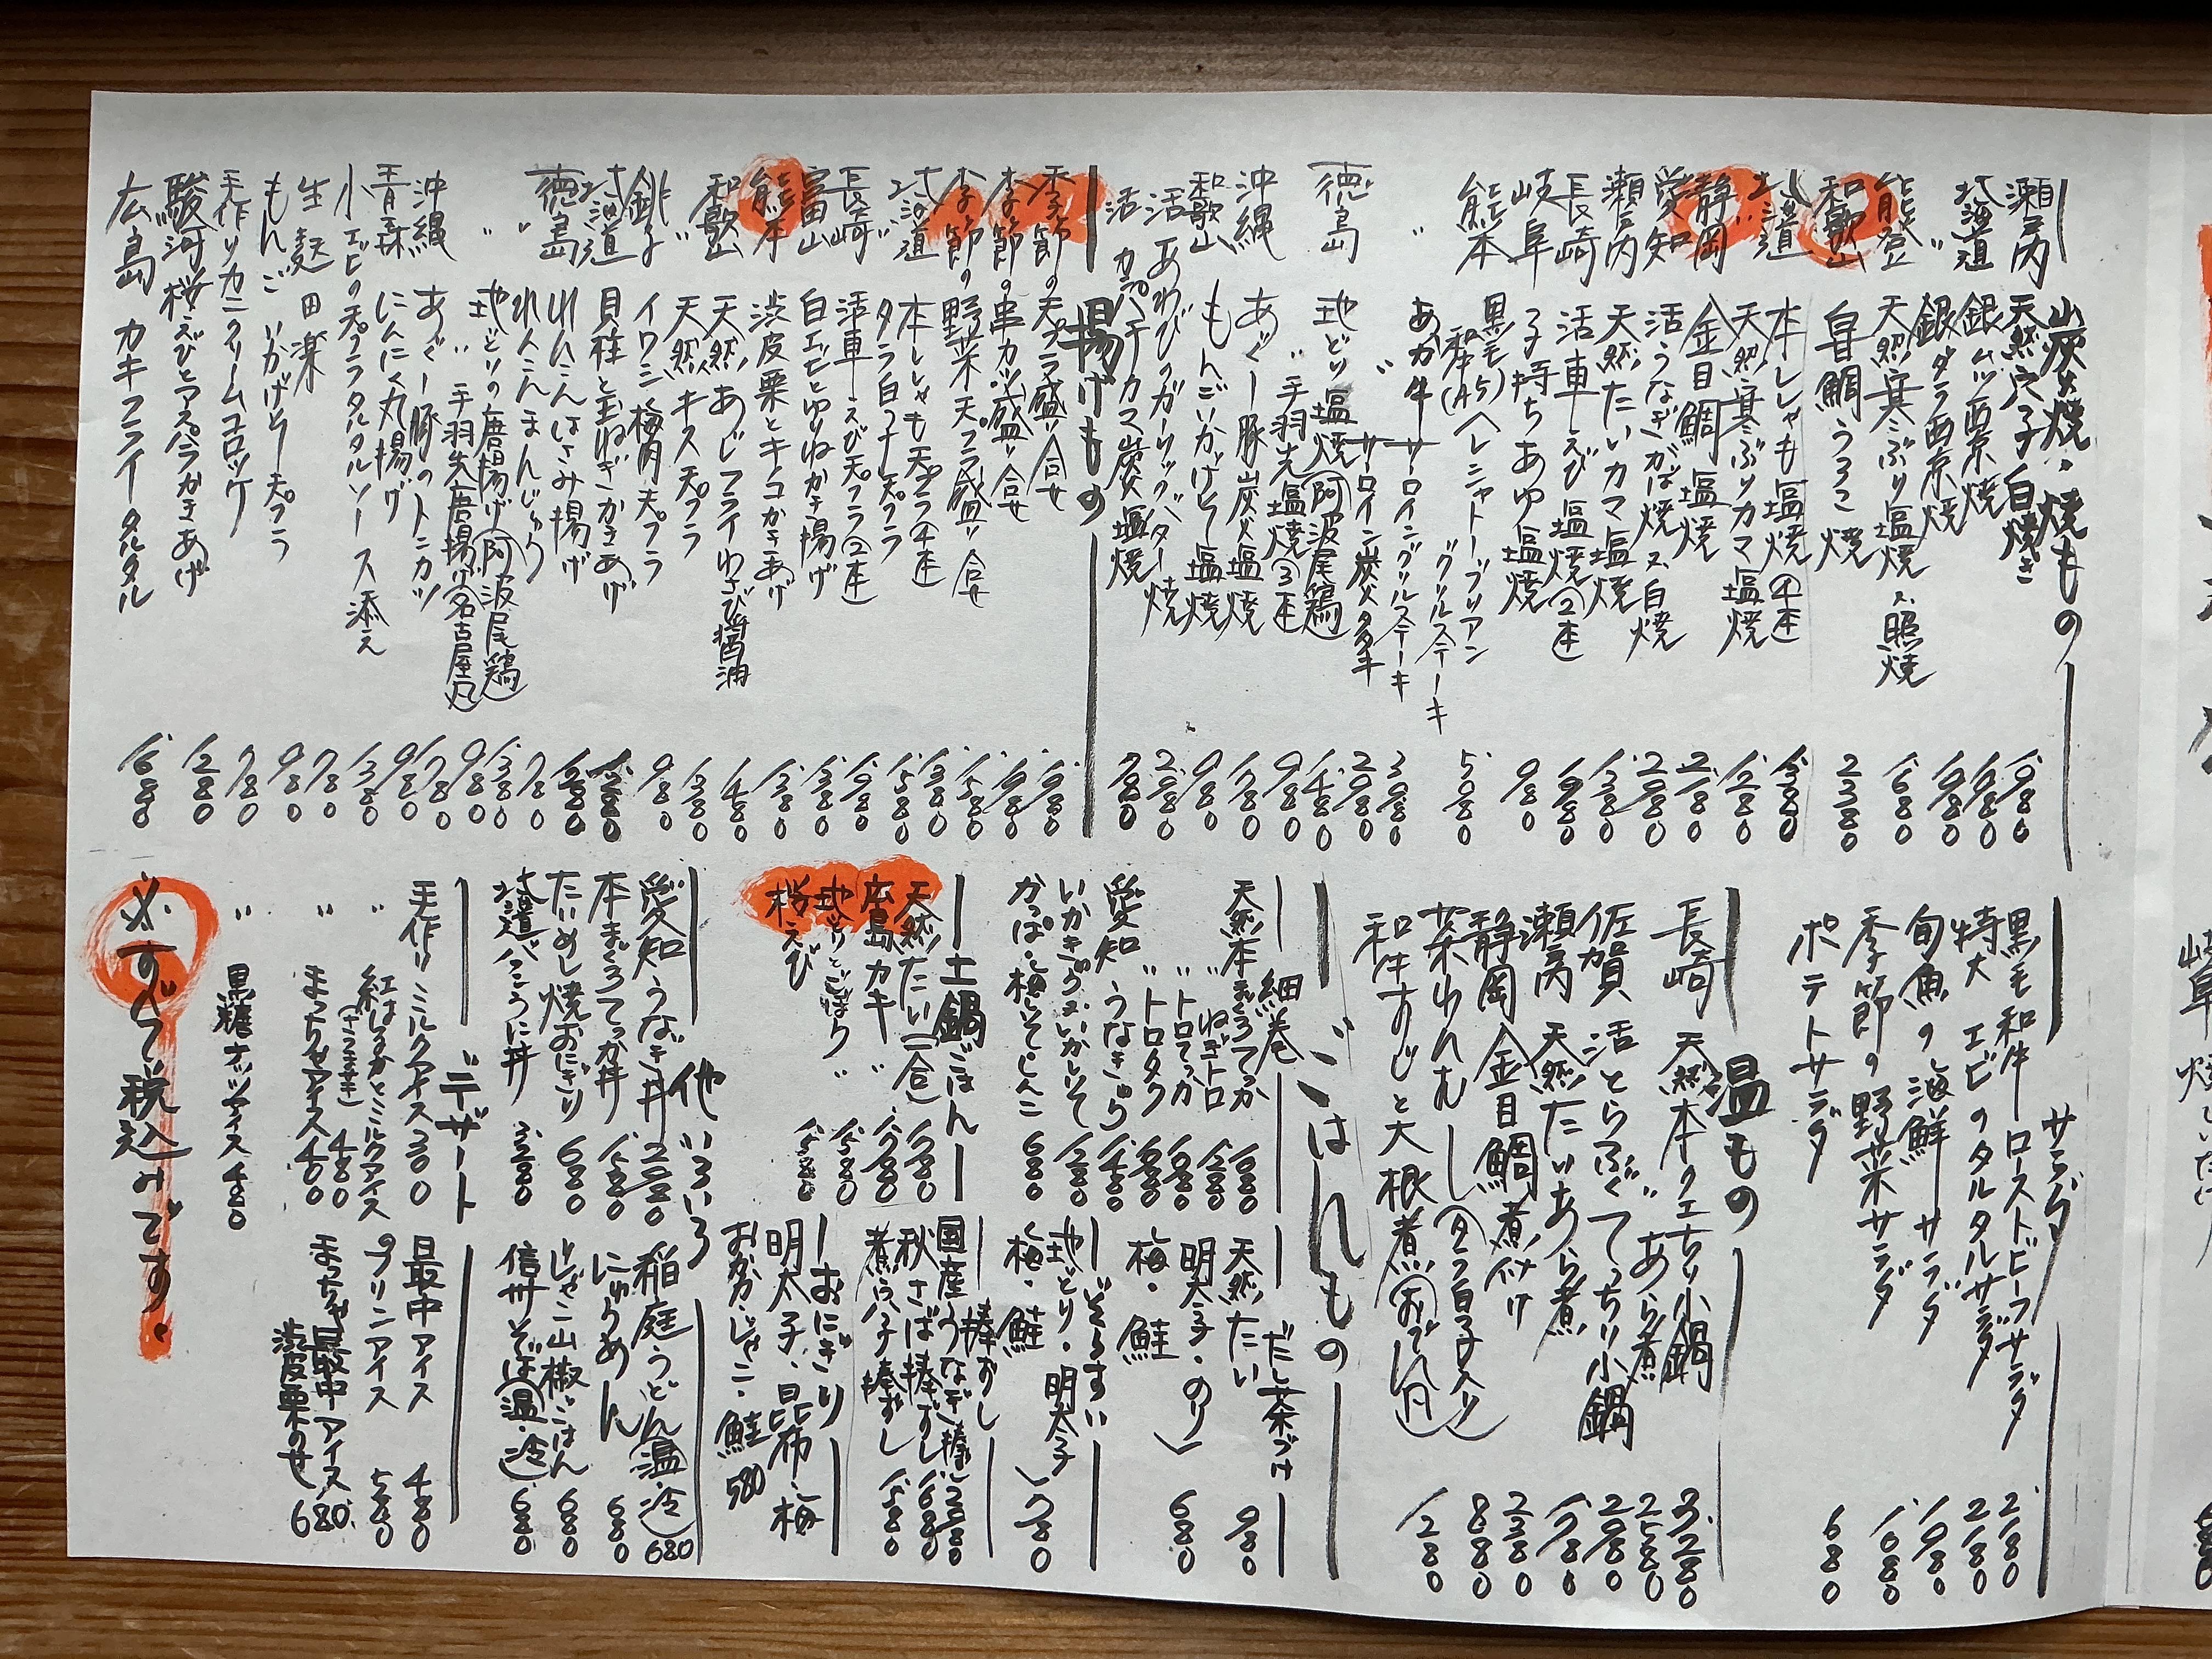 炭火焼・焼もの
瀬戸内 天然穴子白焼き 1,980
北海道 銀ムツ西京焼 1,980
〃 銀ダラ西京焼 1,980
能登 天然寒ぶり塩焼又照焼 1,680
和歌山 甘鯛うろこ焼 2,380
北海道 本ししゃも塩焼(4本) 1,380
〃 天然寒ぶりカマ塩焼 1,280
静岡 金目鯛塩焼 2,180
愛知 活うなぎかば焼又白焼 2,980
瀬戸内 天然たいカマ塩焼 1,380
長崎 活車えび塩焼(2本) 1,980
岐阜 子持ちあゆ塩焼 980
熊本 黒毛和牛(A5)ヘレシャトーブリアン
〃グリルステーキ 5,080
〃 あか牛サーロイングリルステーキ 3,080
〃 サーロイン炭火タタキ 2,980
徳島 地どり塩焼(阿波尾鶏) 1,480
〃 手羽先塩焼(3本) 980
沖縄 あぐー豚炭火塩焼 1,780
和歌山 もんごいかげそ塩焼 980
活あわびのガーリックバター焼 2,980
活〆カンパチカマ炭火塩焼 1,780
揚げもの
季節の天プラ盛り合せ 1,980
季節の串カツ盛り合せ 1,980
季節の野菜天プラ盛り合せ 1,580
北海道 本ししゃも天プラ(4本) 1,380
〃 タラ白子天プラ 1,580
長崎 活車えび天プラ(2本) 1,980
富山 白エビとゆりねかき揚げ 1,380
熊本 渋皮栗とキノコかきあげ 1,380
和歌山 天然あじフライわさび醤油 1,480
〃 天然キス天プラ 1,380
銚子 イワシ梅肉天プラ 980
北海道 貝柱と玉ねぎかきあげ 1,280
れんこんはさみ揚げ 1,280
れんこんまんじゅう 780
徳島 地どりの唐揚げ(阿波尾鶏) 1,380
〃 〃 手羽先唐揚げ(名古屋風) 980
沖縄 あぐー豚のトンカツ 1,780
青森 にんにく丸揚げ 980
小エビの天プラタルタルソース添え 1,380
生麩田楽 780
もんごいかげそ天プラ 980
手作りカニクリームコロッケ 780
駿河桜えびとアスパラかきあげ 1,280
広島 カキフライタルタル 1,680
サラダ
黒毛和牛ローストビーフサラダ 2,180
特大エビのタルタルサラダ 2,180
旬魚の海鮮サラダ 1,980
季節の野菜サラダ 1,080
ポテトサラダ 680
温もの
長崎 天然本クエちり小鍋 3,280
〃 あら煮 2,580
佐賀 活とらふぐてっちり小鍋 2,980
瀬戸内 天然たいあら煮 1,780
静岡 金目鯛煮付け 2,380
茶わんむし(タラ白子入り) 880
和牛すじと大根煮(おでん風) 1,280
ごはんもの
細巻
天然本まぐろてっか 1,680
〃 ねぎトロ 1,280
〃 トロてっか 1,980
〃 トロタク 1,680
愛知 うなきゅう 1,480
いかきゅう又いかしそ 1,280
かっぱ・梅しそ・しんこ 680
だし茶づけ
天然たい 980
明太子・のり
梅・鮭 680
ぞうすい
地どり・明太子
梅・鮭 780
土鍋ごはん
天然たい(一合) 1,780
広島カキ 〃 1,780
地どりとごぼう 〃 1,580
桜えび 〃 1,580
棒ずし
国産うなぎ棒ずし 2,980
秋さば棒ずし 1,680
煮穴子棒ずし 1,580
おにぎり
明太子・昆布・梅
おかか・じゃこ・鮭 580
他いろいろ
愛知うなぎ丼 2,980
本まぐろてっか丼 1,580
たいめし焼おにぎり 680
北海道バフンうに丼 3,280
稲庭うどん(温・冷) 680
にゅうめん 680
じゃこ山椒ごはん 680
信州そば(温・冷) 680
デザート
手作りミルクアイス 300
〃 紅はるかとミルクアイス
(さつまイモ) 480
〃 まっちゃアイス 400
〃 黒糖ナッツアイス 480
最中アイス 480
プリンアイス 580
まっちゃ最中アイス
渋皮栗のせ 680
※すべて税込みです。